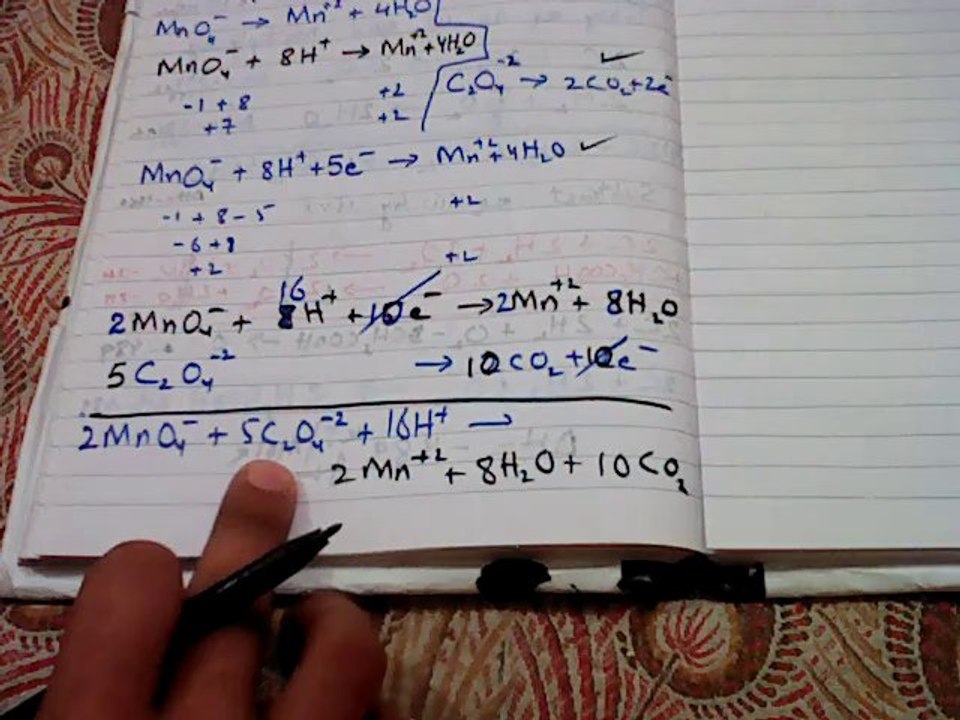 MnO₄⁻ → Mn⁺² + 4H₂O
MnO₄⁻ + 8H⁺ → Mn⁺² + 4H₂O
C₂O₄⁻² → 2CO₂ + 2e⁻ ✓
-1 + 8 +2
+7 +2
MnO₄⁻ + 8H⁺ + 5e⁻ → Mn⁺² + 4H₂O ✓
-1 + 8 - 5 +2
-6 + 8
+2 +2
2MnO₄⁻ + 16H⁺ + 10e⁻ → 2Mn⁺² + 8H₂O
5C₂O₄⁻² → 10CO₂ + 10e⁻
2MnO₄⁻ + 5C₂O₄⁻² + 16H⁺ →
2Mn⁺² + 8H₂O + 10CO₂